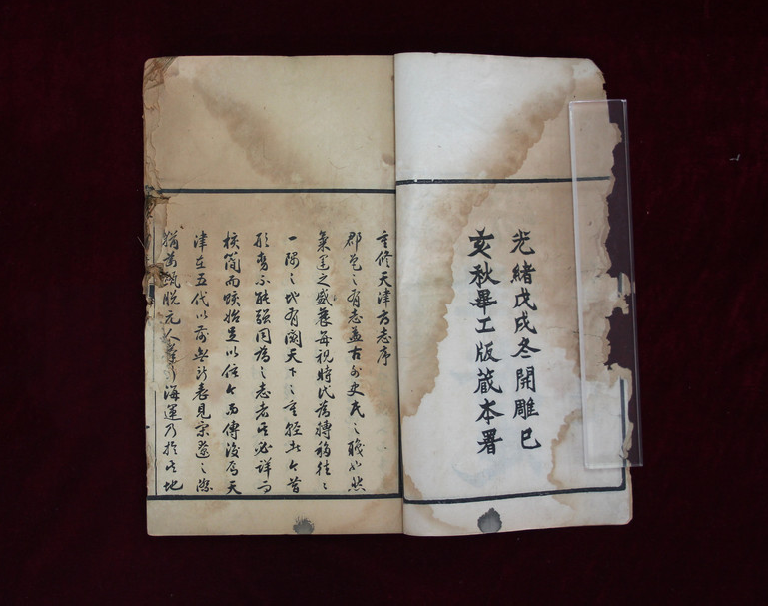 光緒戊戌冬開雕已
亥秋畢工版蔵本署
重修天津府志序
郡邑之有志蓋古外史氏之職也然
氣運之盛衰每視時代為轉移往往
一隅之地有關天下之重輕此今昔
形勢不能強同為之志者必詳而
核簡而賅始足以信今而傳後焉天
津在五代以前無所表見宋遼之際
猶甌脫元人海運乃於其地